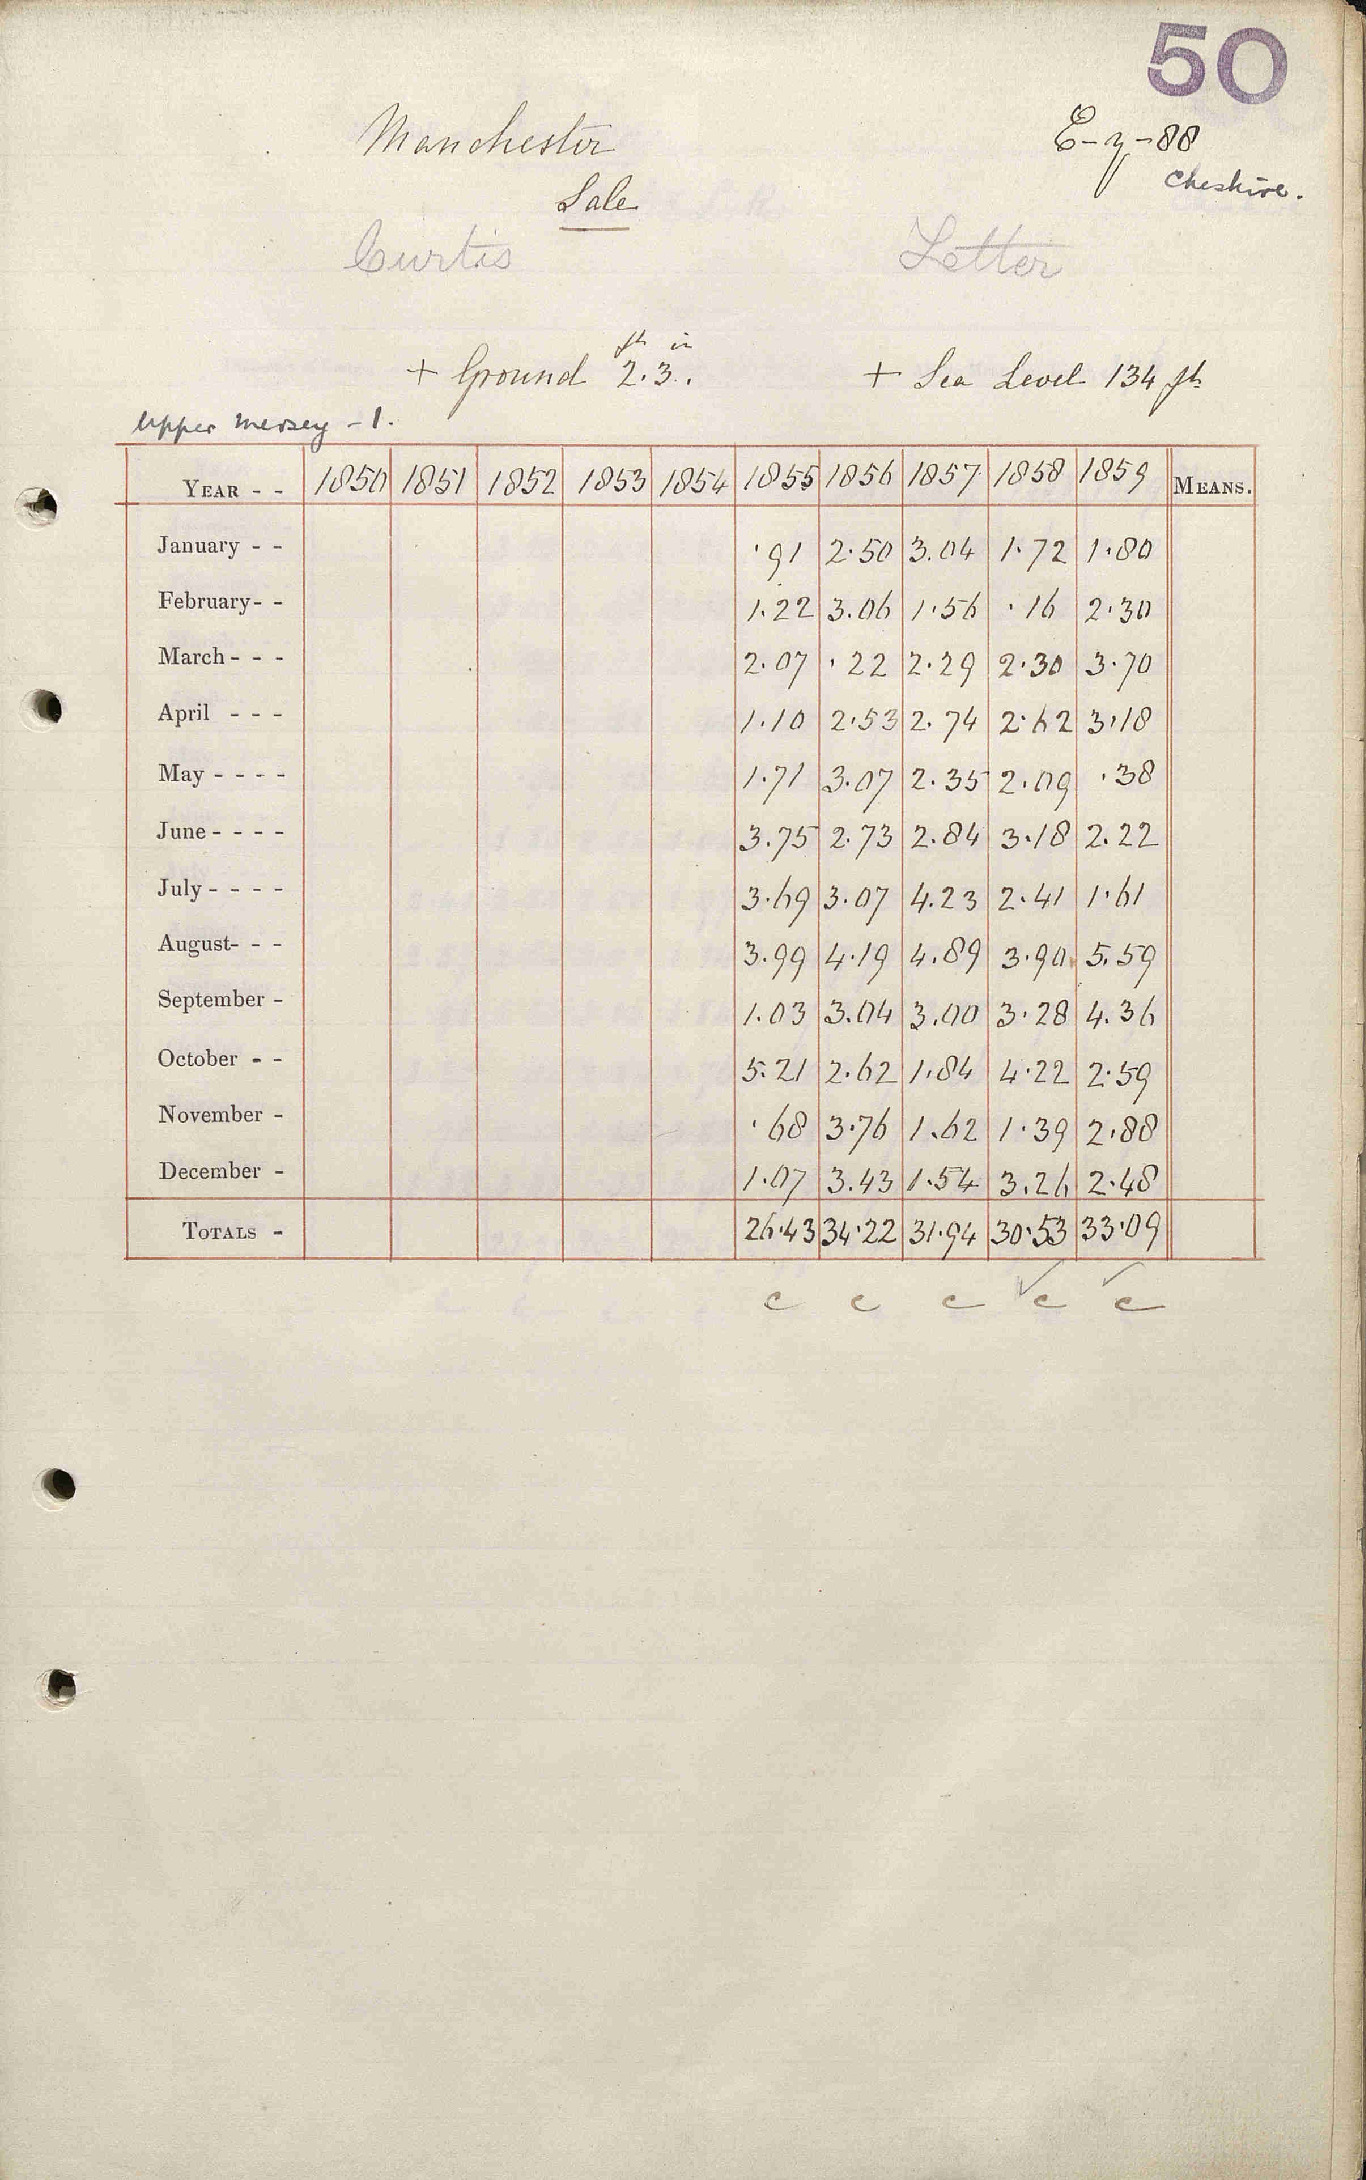 50
Manchester
E-y-88
Cheshire.
Sale
Curtis Letter
ft in
+ Ground 2.3. + Sea Level 134 ft
Upper Mersey - 1.
YEAR - - 1850 1851 1852 1853 1854 1855 1856 1857 1858 1859 MEANS.
January - - .91 2.50 3.04 1.72 1.80
February- - 1.22 3.06 1.56 .16 2.30
March- - - 2.07 .22 2.29 2.30 3.70
April - - - 1.10 2.53 2.74 2.62 3.18
May - - - - 1.71 3.07 2.35 2.09 .38
June - - - - 3.75 2.73 2.84 3.18 2.22
July - - - - 3.69 3.07 4.23 2.41 1.61
August- - - 3.99 4.19 4.89 3.90 5.59
September - 1.03 3.04 3.00 3.28 4.36
October - - 5.21 2.62 1.84 4.22 2.59
November - .68 3.76 1.62 1.39 2.88
December - 1.07 3.43 1.54 3.26 2.48
TOTALS - 26.43 34.22 31.94 30.53 33.09
c c c ✓c ✓c